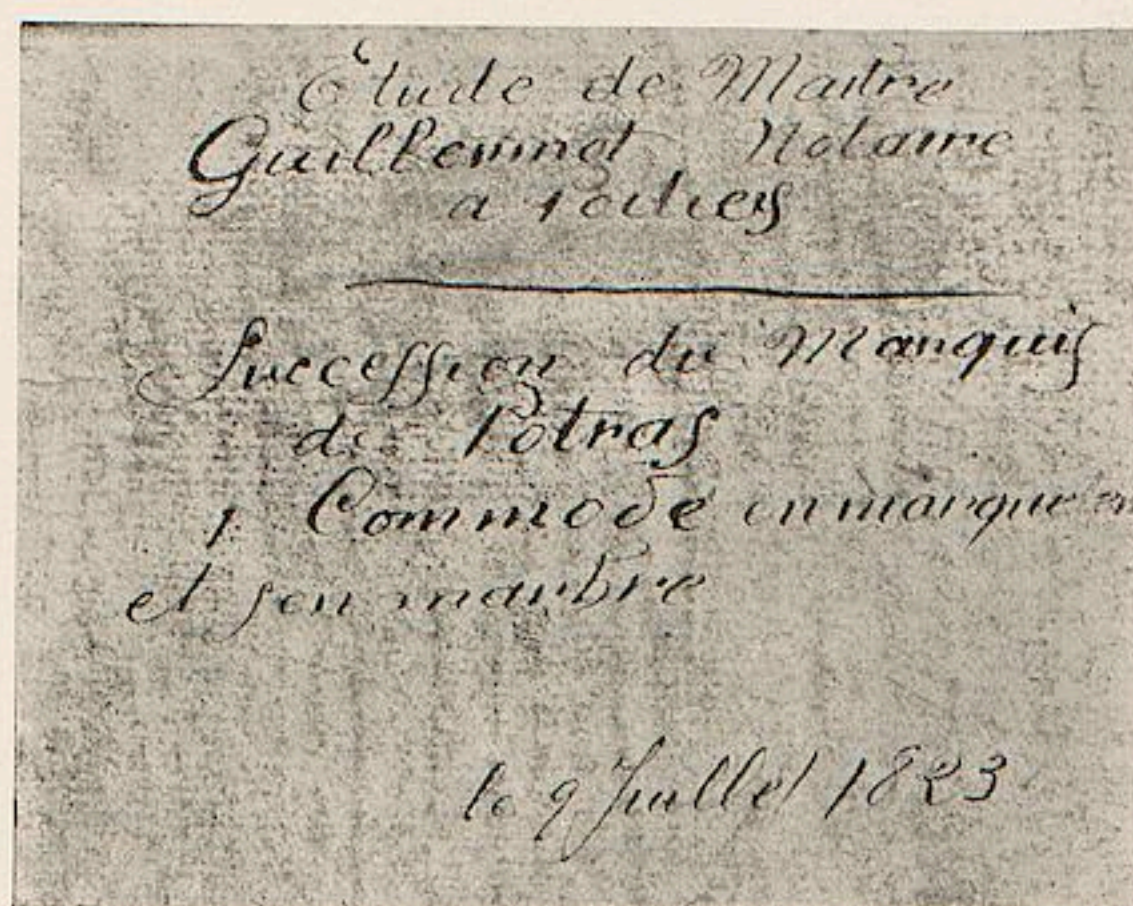 Etude de Maitre
Guillemmot Notaire
a Poitiers
Succession du Marquis
de Potras
1 Commode en marque
et son marbre
le 9 Juillet 1823